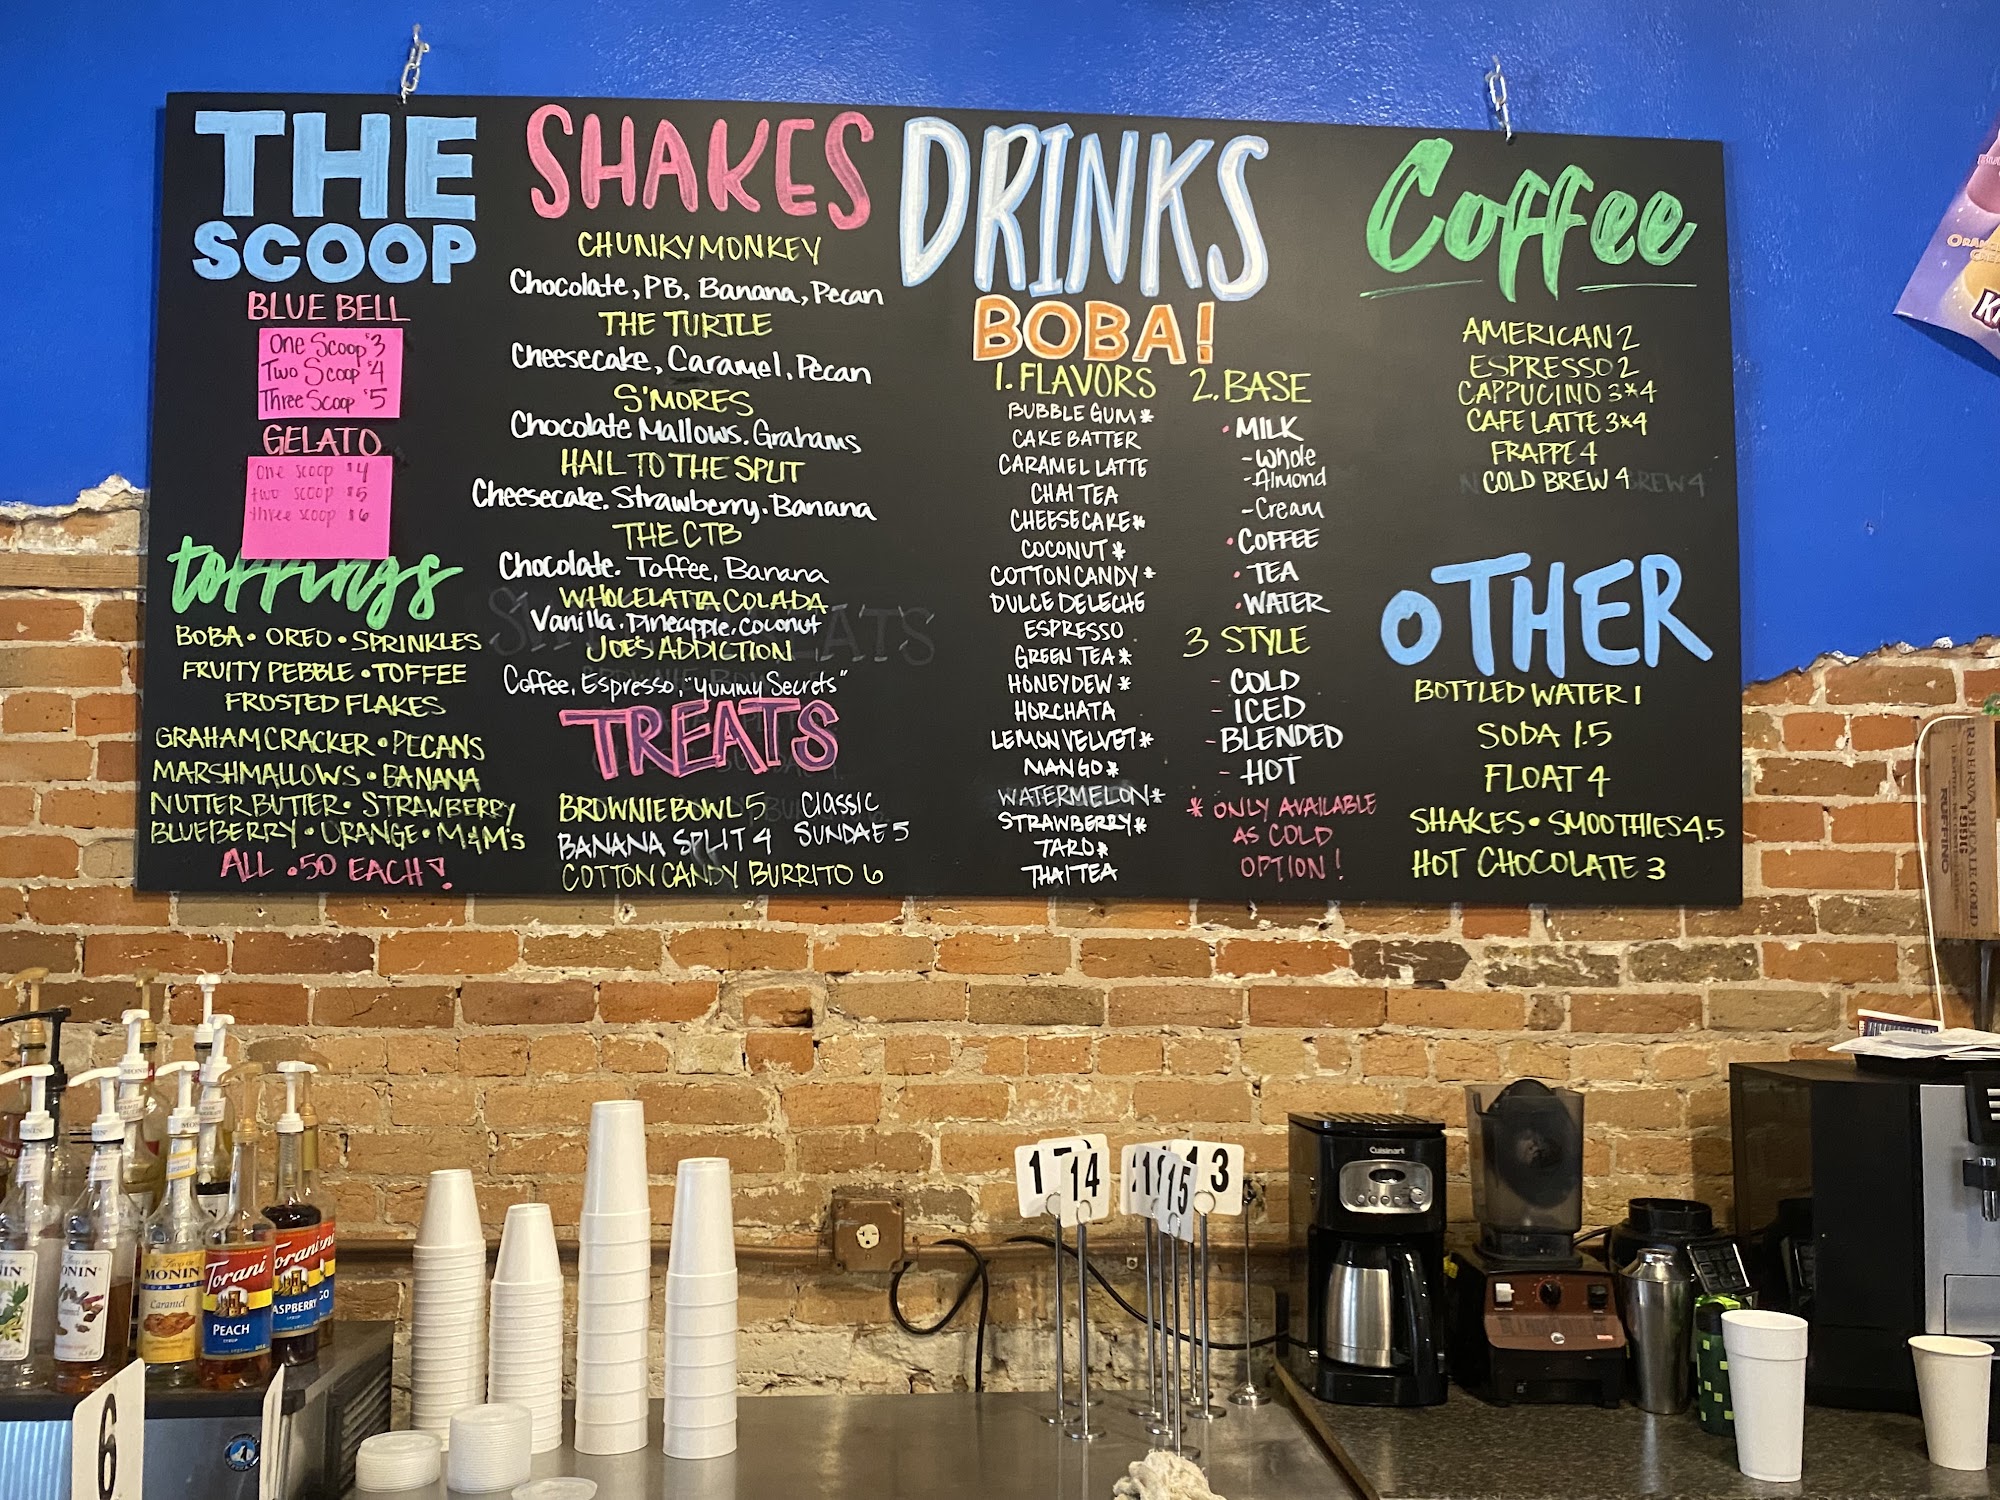 THE
SCOOP
BLUE BELL
One Scoop $3
Two Scoop $4
Three Scoop $5
GELATO
One scoop $4
two scoop $5
three scoop $6
toppings
BOBA • OREO • SPRINKLES
FRUITY PEBBLE • TOFFEE
FROSTED FLAKES
GRAHAM CRACKER • PECANS
MARSHMALLOWS • BANANA
NUTTER BUTTER • STRAWBERRY
BLUEBERRY • ORANGE • M&M's
ALL .50 EACH!
SHAKES
CHUNKY MONKEY
Chocolate, PB, Banana, Pecan
THE TURTLE
Cheesecake, Caramel, Pecan
S'MORES
Chocolate Mallows, Grahams
HAIL TO THE SPLIT
Cheesecake, Strawberry, Banana
THE CTB
Chocolate, Toffee, Banana
WHOLELATTA COLADA
Vanilla, Pineapple, Coconut
JOE'S ADDICTION
Coffee, Espresso, "Yummy Secrets"
TREATS
BROWNIE BOWL 5
BANANA SPLIT 4
Classic
SUNDAE 5
COTTON CANDY BURRITO 6
DRINKS
BOBA!
1. FLAVORS
BUBBLE GUM *
CAKE BATTER
CARAMEL LATTE
CHAI TEA
CHEESECAKE *
COCONUT *
COTTON CANDY *
DULCE DE LECHE
ESPRESSO
GREEN TEA *
HONEYDEW *
HORCHATA
LEMON VELVET *
MANGO *
WATERMELON *
STRAWBERRY *
TARO *
THAI TEA
2. BASE
• MILK
- Whole
- Almond
- Cream
• COFFEE
• TEA
• WATER
3 STYLE
- COLD
- ICED
- BLENDED
- HOT
* ONLY AVAILABLE
AS COLD
OPTION!
Coffee
AMERICAN 2
ESPRESSO 2
CAPPUCINO 3*4
CAFE LATTE 3*4
FRAPPE 4
COLD BREW 4
OTHER
BOTTLED WATER 1
SODA 1.5
FLOAT 4
SHAKES • SMOOTHIES 4.5
HOT CHOCOLATE 3
RISERVA DUCALE GOLD
1996
RUFFINO
MONIN
Caramel
Torani
PEACH
SYRUP
Torani
RASPBERRY
14
15
13
6
Cuisinart